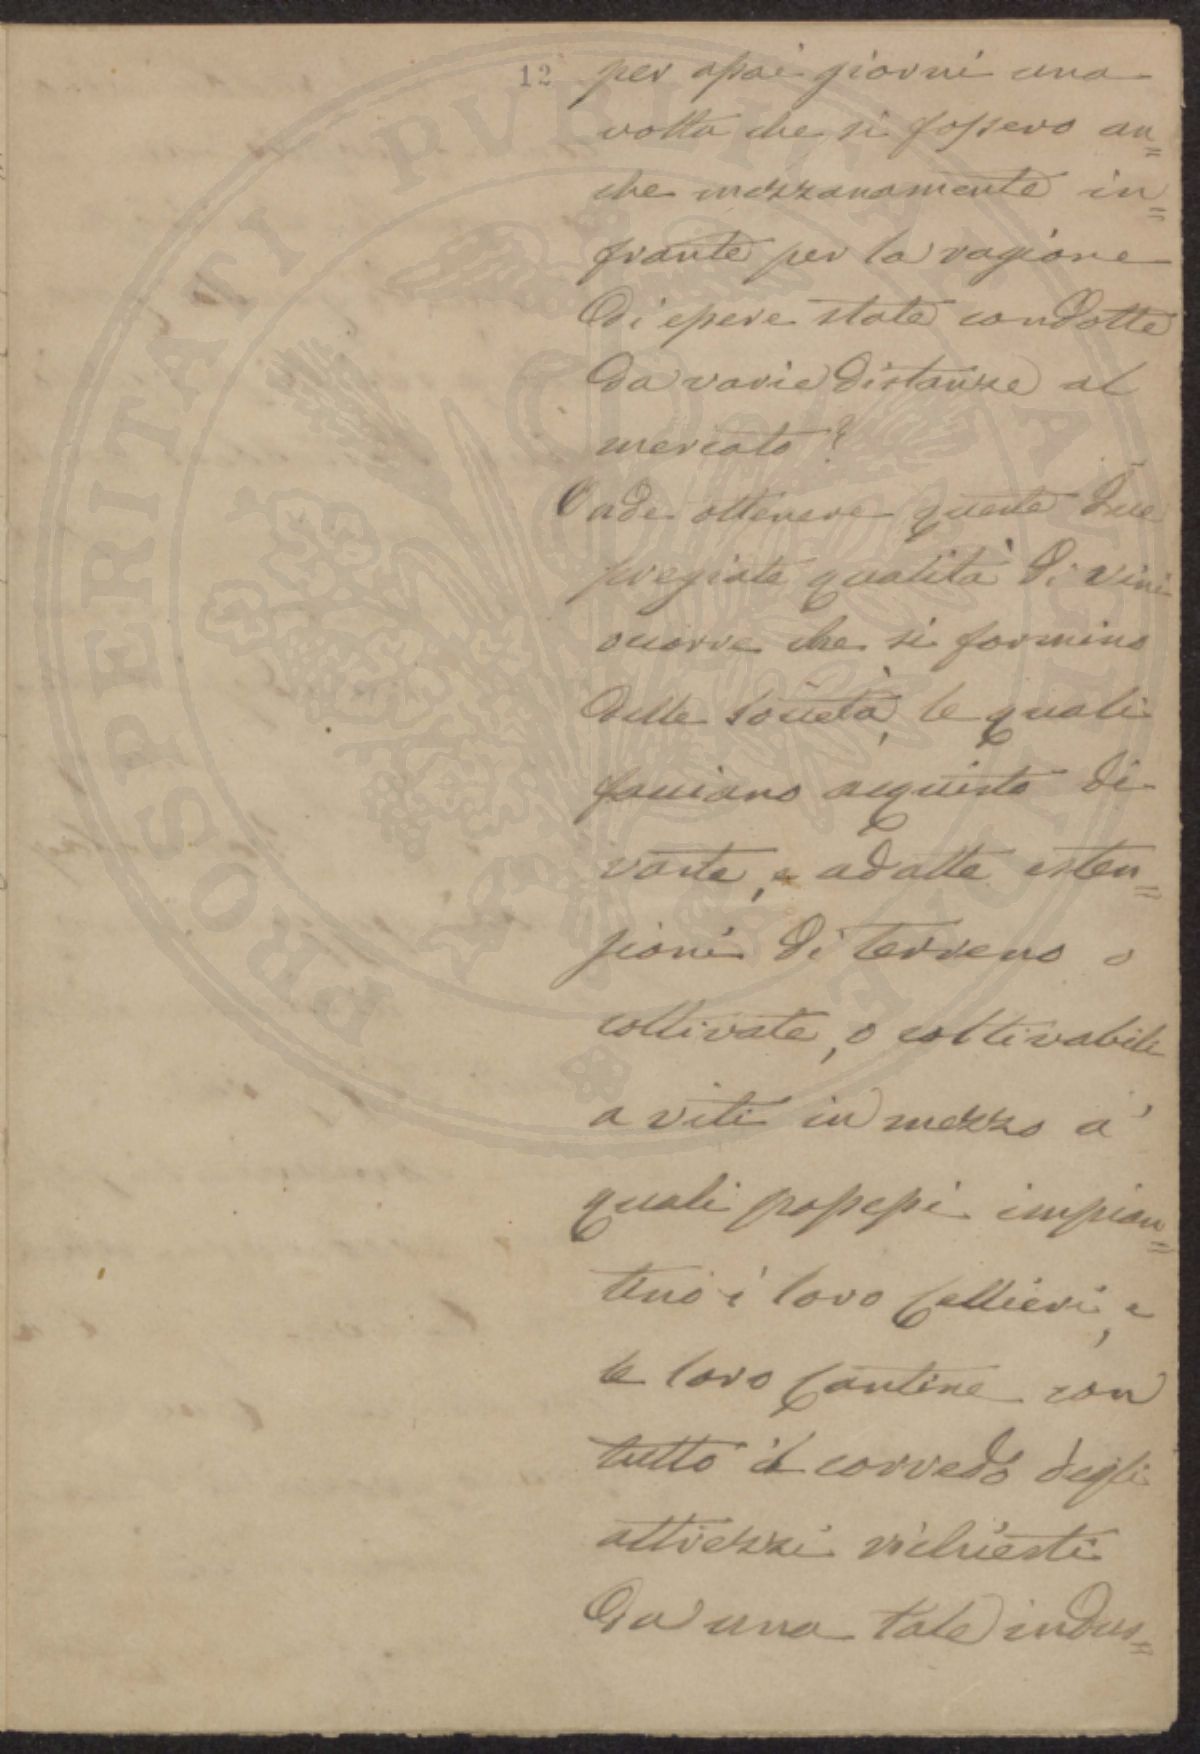 12
per assai giorni una
volta che si fossero an=
che mezzanamente in=
frante per la ragione
di essere state condotte
da varie distanze al
mercato?
Onde ottenere queste due
pregiate qualità di vini
ocorre che si formino
delle Società, le quali
facciano acquisto di
vaste, e adatte esten=
sioni di terreno o
coltivate, o coltivabili
a viti in mezzo a'
quali possessi impian=
tino i loro Cellieri, e
le loro Cantine con
tutto il corredo degli
attrezzi richiesti
da una tale indus=
PROSPERITATI PVBLICAE AVGENDAE